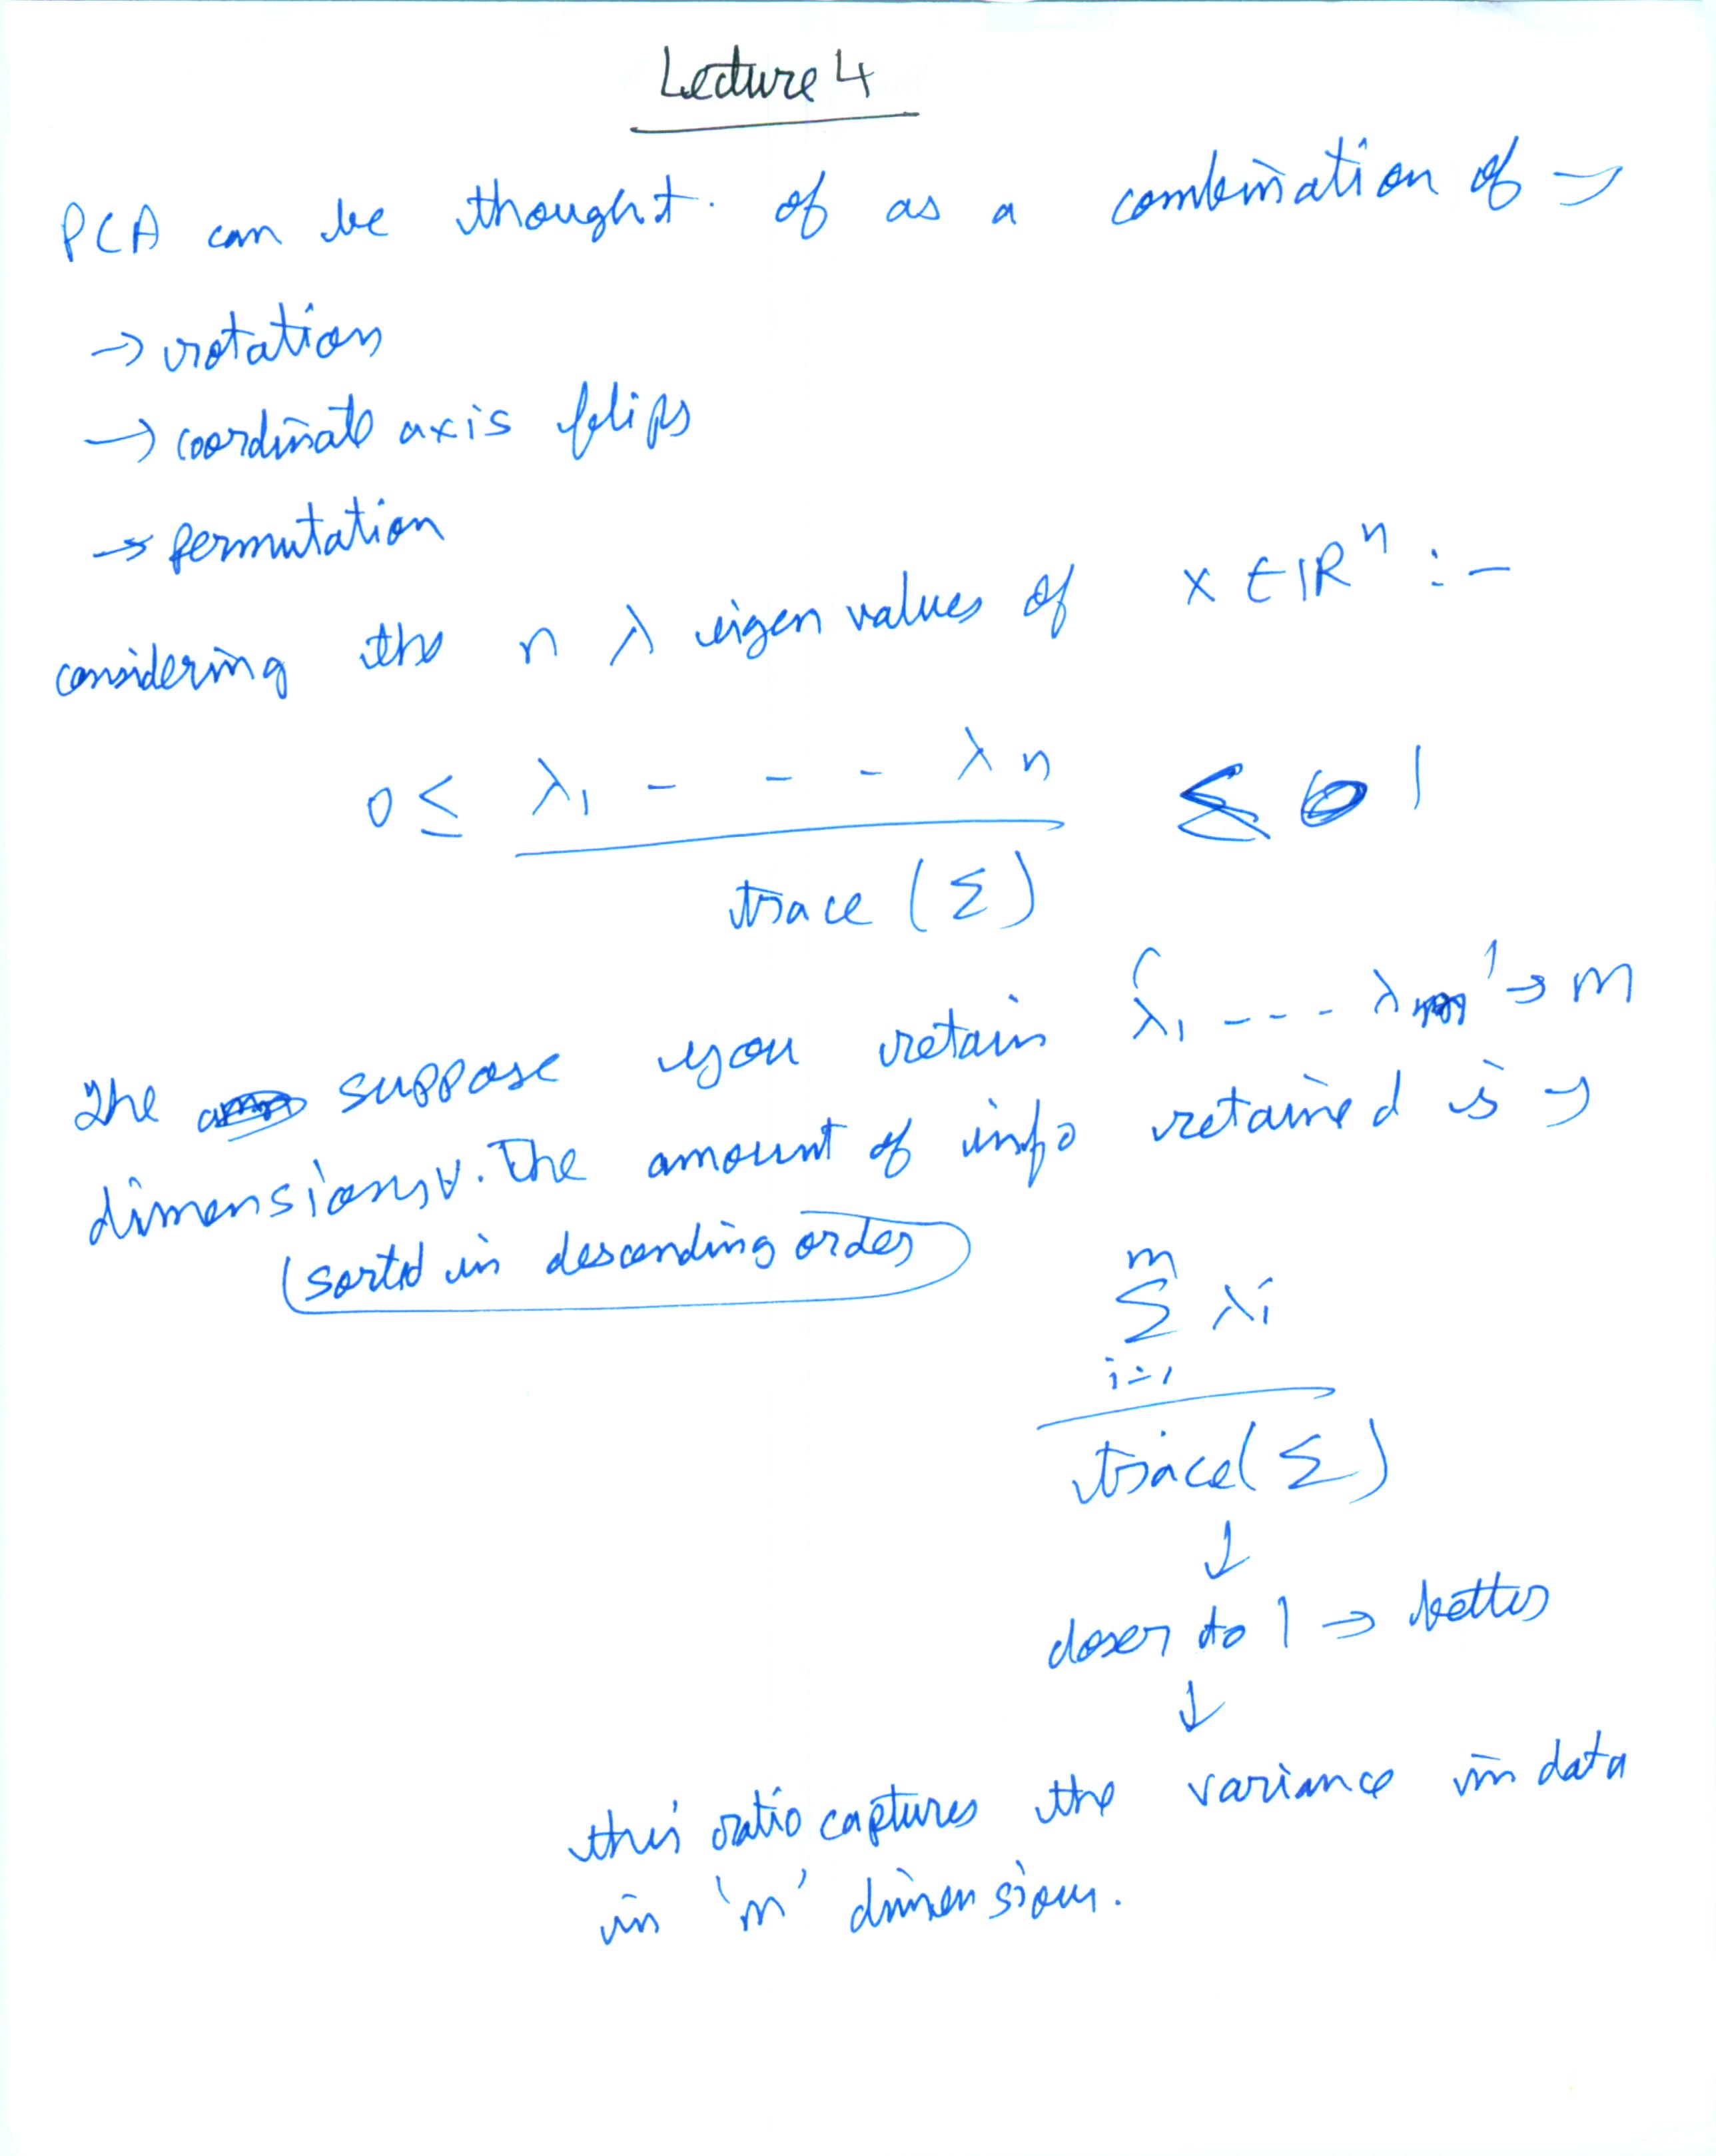 Lecture 4
PCA can be thought of as a combination of →
→ rotation
→ coordinate axis flips
→ permutation
considering the n λ eigen values of x ∈ ℝⁿ :-
0 ≤ λ₁ - - - λn / trace (Σ) ≤ 1
The suppose you retain λ₁ ---- λm → m
dimensions. The amount of info retained is →
(sorted in descending order)
m
Σ λi
i=1
trace(Σ)
↓
closer to 1 → better
↓
this ratio captures the variance in data
in 'm' dimensions.